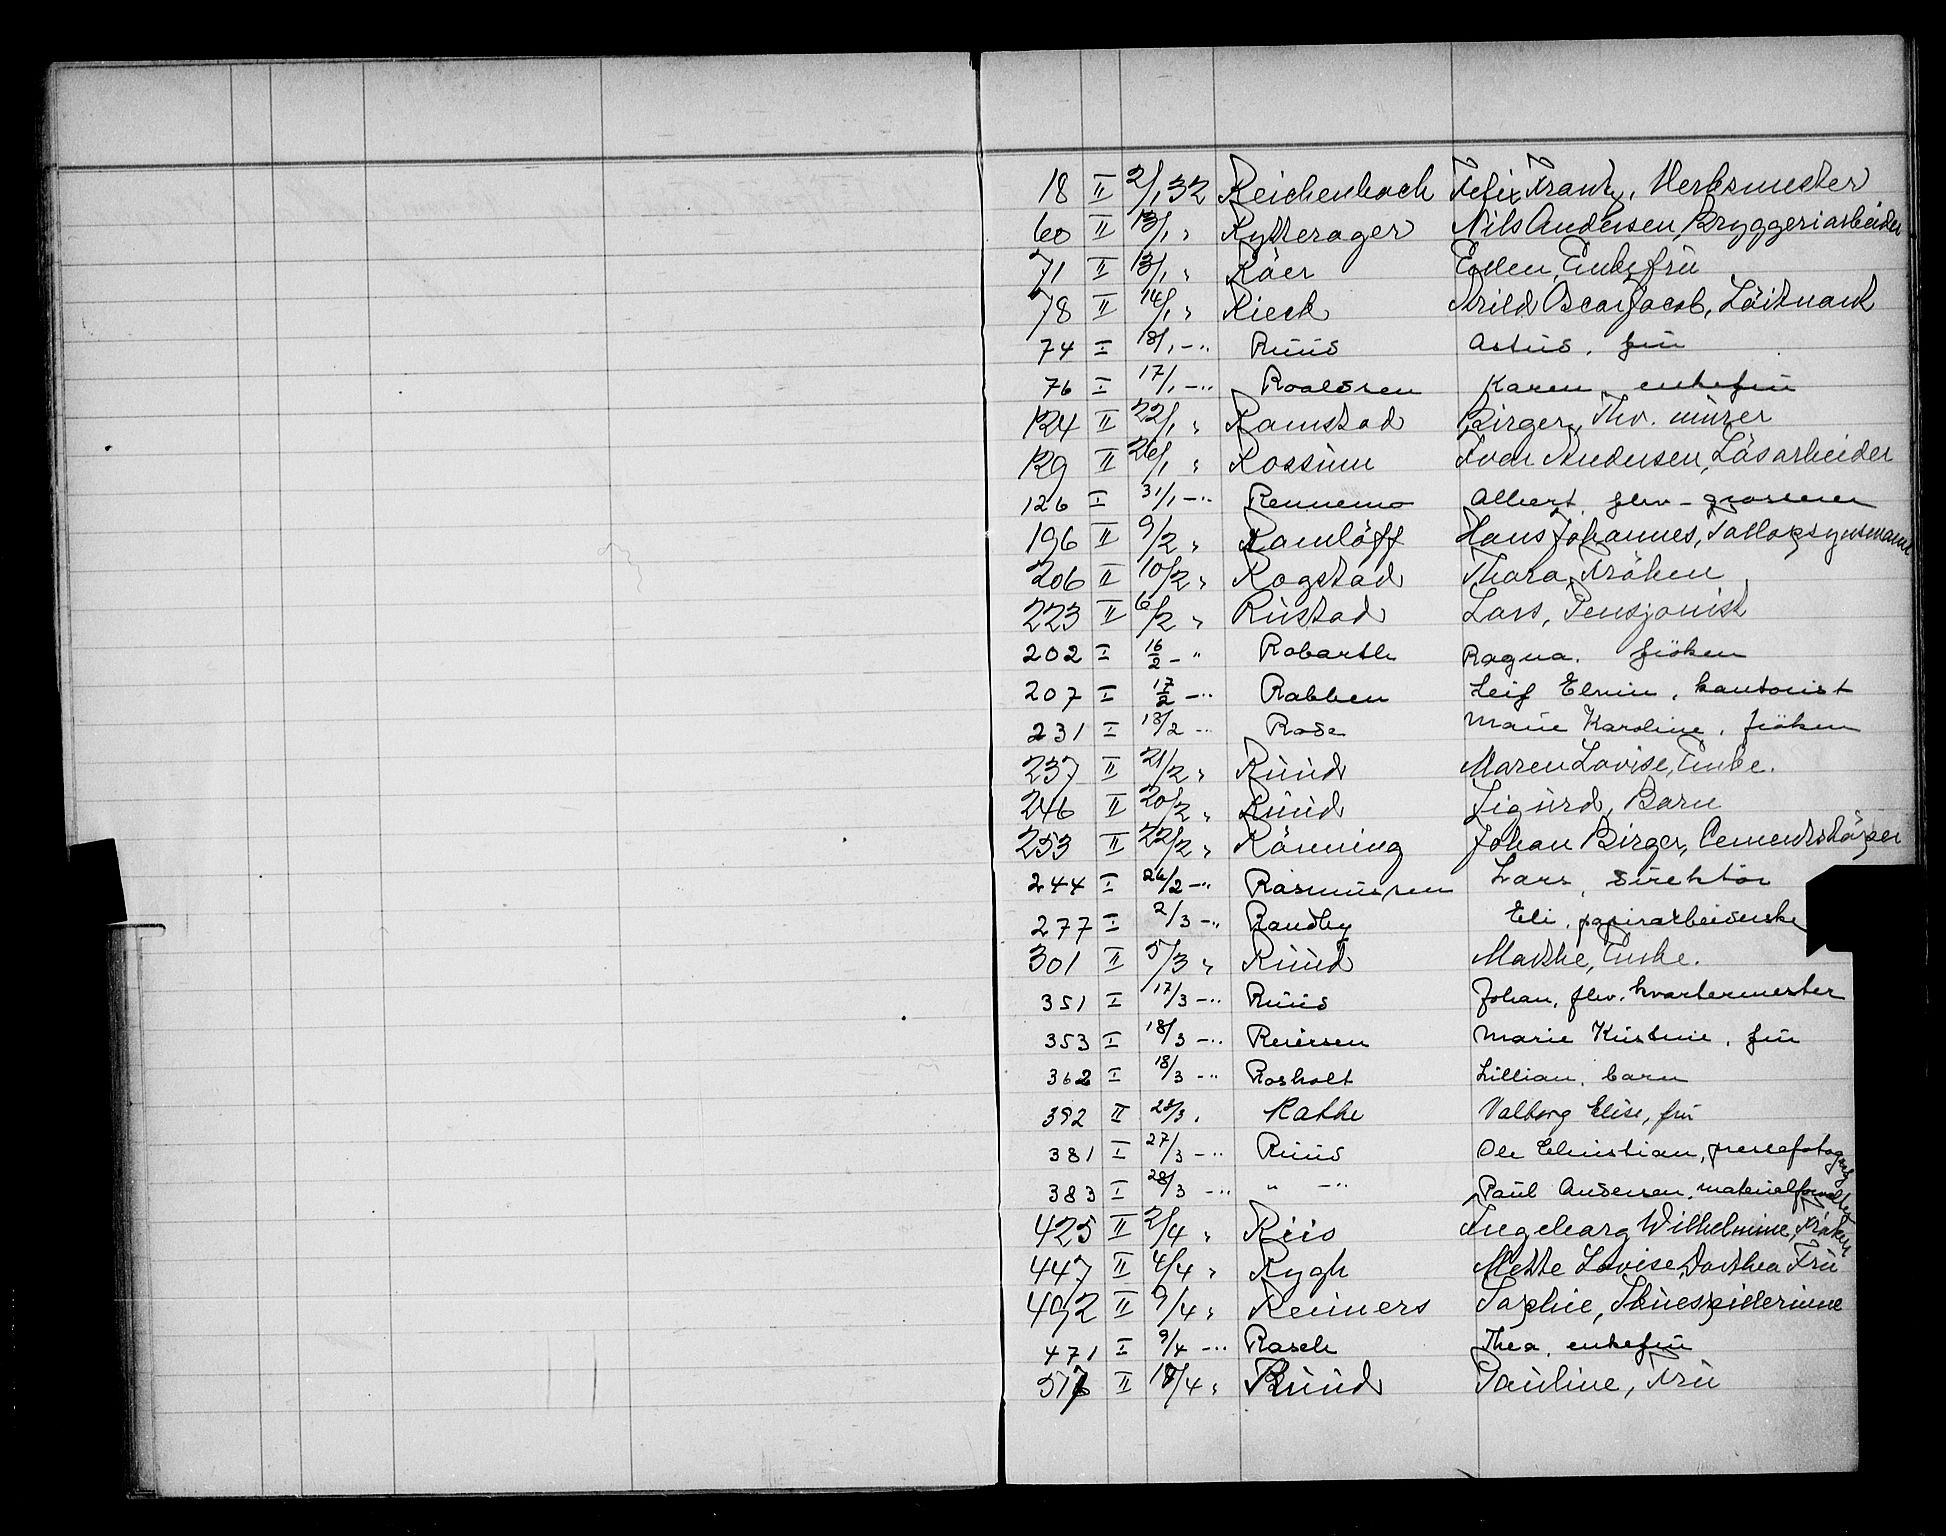 18 II 2/1 32 Reichenbach Felix Frantz, Verksmester
60 II 13/1 " Rytterager Nils Andersen, Bryggeriarbeider
71 II 13/1 " Röer Ellen, Enkefru
78 II 14/1 " Rieck Arild Oscar Jacob, Löitnant
74 I 18/1 -"- Ruus Astus, fru
76 I 17/1 -"- Roaldsen Karen, enkefru
124 II 22/1 " Ramstad Birger, Thv. murer
129 II 26/1 " Rossum Ivar Andersen, Lösarbeider
126 I 31/1 -"- Rennemo Albert, fhv. grosserer
196 II 9/2 " Ramlöff Hans Johannes, Tollopsynsmann
206 II 10/2 " Rogstad Thora, Fröken
223 II 6/2 " Rustad Lars, Pensjonist
202 I 16/2 -"- Robarth Ragna, fröken
207 I 17/2 -"- Rabben Leif Elvin, kontorist
231 I 18/2 -"- Rose Marie Karoline, fröken
237 II 21/2 " Ruud Maren Lovise, Enke.
246 II 20/2 " Ruud Sigurd, Barn
253 II 22/2 " Rönning Johan Birger, Cementstöper
244 I 26/2 -"- Rasmussen Lars, direktör
277 I 2/3 -"- Randby Eli, papirarbeiderske
301 II 5/3 " Ruud Marthe, Enke.
351 I 17/3 -"- Ruus Johan, fhv. kvartermester
353 I 18/3 -"- Reiersen Marie Kristine, fru
362 I 18/3 -"- Rosholt Lillian, barn
392 II 28/3 " Rathe Valborg Elise, fru
381 I 27/3 -"- Ruus Ole Christian, pressefotograf
383 I 28/3 -"- " -"- Paul Andersen, materialforvalter
425 II 2/4 " Riis Ingeborg Wilhelmine, Fröken
447 II 4/4 " Rygh Mette Lovise Dorthea Fru
492 II 9/4 " Reimers Sophie, Skuespillerinne
471 I 9/4 -"- Rasch Thea, enkefru
II /4 " Ruud Pauline, Fru